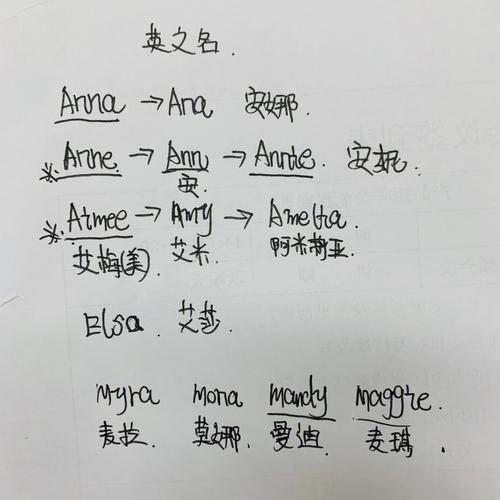 英文名.
Anna → Ana 安娜.
※Anne → Ann → Annie. 安妮.
安
※Aimee → Amy → Amelia.
艾梅(美). 艾米. 阿米莉亚.
Elsa. 艾莎.
myra mona mandy maggie.
麦拉. 莫娜. 曼迪. 麦琪.